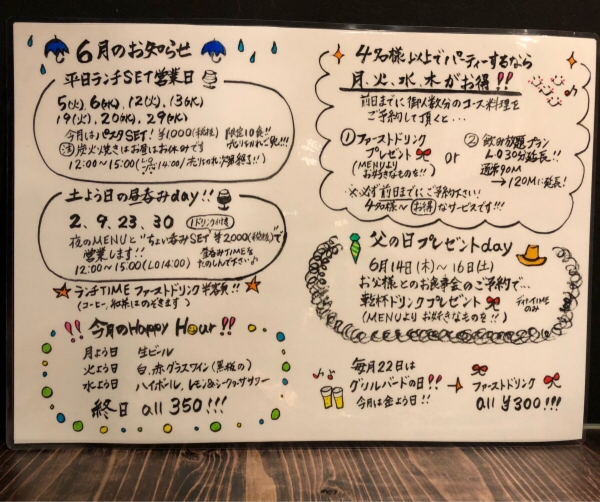 6月のお知らせ
平日ランチSET営業日
5(火), 6(水), 12(火), 13(水)
19(火), 20(水), 29(水)
今月はパスタSET! ¥1000(税抜) 限定10食!!
売りきれごめん!!!
注 炭火焼きはお昼はお休みです
12:00〜15:00(LO14:00) 売りきれ次第終了!!)
土よう日の昼呑みday!!
2、9、23、30 1ドリンク付き
夜のMENUと"ちょい呑みSET ¥2000(税抜)"で
営業します!! 昼呑みTIMEを
12:00〜15:00(LO14:00) たのしんで下さい♪
ランチTIME ファーストドリンク半額!!
(コーヒー、和茶はのぞきます)
!! 今月のHappy Hour!!
月よう日 生ビール
火よう日 白、赤、グラスワイン(黒板の)
水よう日 ハイボール、レモン&シークァーサーサワー
終日 all 350!!!
4名様以上でパーティーするなら
月、火、水、木がお得!!
前日までに御人数分のコース料理を
ご予約して頂くと…
① ファーストドリンク
プレゼント
(MENUより
お好きなものを!!)
or
② 飲み放題プラン
L.O30分延長!!
通常90M
→120Mに延長!
※必ず前日までにご予約下さい!
4名様〜 お得 なサービスです!!!
父の日プレゼントday
6月14日(木)〜16日(土)
お父様とのお食事会のご予約で…
乾杯ドリンクプレゼント ディナーTIME
のみ
(MENUよりお好きなものを!!)
毎月22日は
グリルバードの日!! → ファーストドリンク
今月は金よう日!! all ¥300!!!